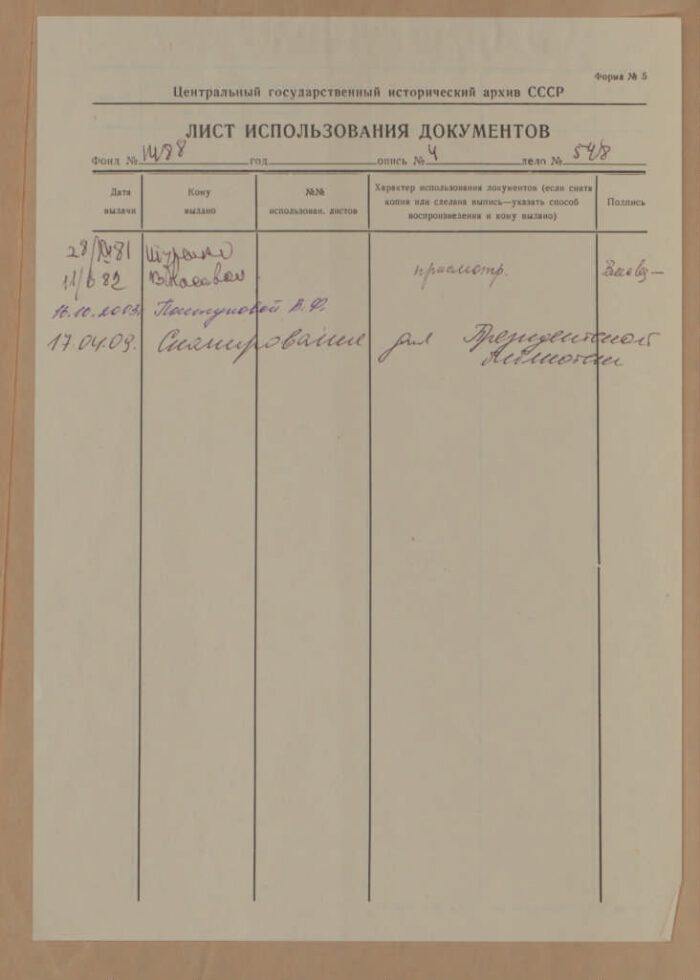 Форма № 5
Центральный государственный исторический архив СССР
ЛИСТ ИСПОЛЬЗОВАНИЯ ДОКУМЕНТОВ
Фонд № 1488 год опись № 4 дело №
Дата выдачи
Кому выдано
№№ использован. листов
Характер использования документов (если снята
копия или сделана выпись—указать способ
воспроизведения и кому выдано)
Подпись
11/6 82 просмотр.
16.10.2003.
17.04.09. Сканирование для Президентской
библиотеки